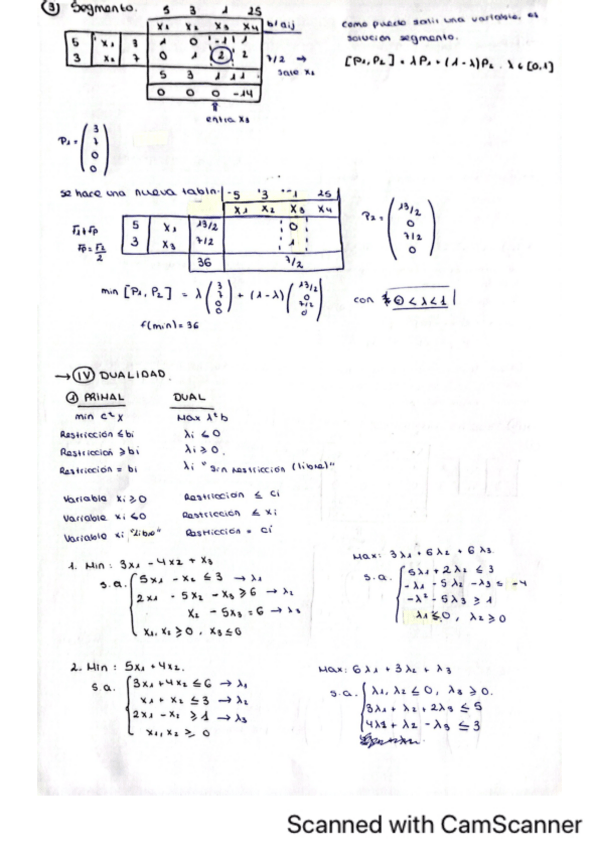 ③ Segmento.
5 3 1 25
x₁ x₂ x₃ x₄ b/aij
5 x₁ 3 1 0 -1 1
3 x₂ 7 0 1 2 2 7/2 →
5 3 1 11 sale x₂
0 0 0 -14
entra x₃
como puede salir una variable, es
solución segmento.
[P₁, P₂] = λP₁ + (1-λ)P₂ . λ ∈ [0,1]
P₁ = (3 7 0 0)
se hace una nueva tabla.
-5 3 -1 25
x₁ x₂ x₃ x₄
F₁+Fp 5 x₁ 13/2 0
Fp = F₂/2 3 x₃ 7/2 1
36 7/2
P₂ = (13/2 0 7/2 0)
min [P₁, P₂] = λ (3 7 0 0) + (1-λ) (13/2 0 7/2 0) con 0 < λ < 1
f(min) = 36
→ IV DUALIDAD.
① PRIMAL DUAL
min cᵗx Max λᵗb
Restricción ≤ bi λi ≤ 0
Restricción ≥ bi λi ≥ 0.
Restricción = bi λi "sin restricción (libre)"
Variable xi ≥ 0 Restricción ≤ ci
Variable xi ≤ 0 Restricción ≤ xi
Variable xi "libre" Restricción = ci
1. Min : 3x₁ - 4x₂ + x₃
s.a. 5x₁ - x₂ ≤ 3 → λ₁
2x₁ - 5x₂ - x₃ ≥ 6 → λ₂
x₂ - 5x₃ = 6 → λ₃
x₁, x₂ ≥ 0 , x₃ ≤ 0
Max: 3λ₁ + 6λ₂ + 6λ₃
s.a. 5λ₁ + 2λ₂ ≤ 3
-λ₁ - 5λ₂ -λ₃ ≤ -4
-λ² - 5λ₃ ≥ 1
λ₁ ≤ 0, λ₂ ≥ 0
2. Min : 5x₁ + 4x₂.
s.a. 3x₁ + 4x₂ ≤ 6 → λ₁
x₁ + x₂ ≤ 3 → λ₂
2x₁ - x₂ ≥ 1 → λ₃
x₁, x₂ ≥ 0
Max: 6λ₁ + 3λ₂ + λ₃
s.a. λ₁, λ₂ ≤ 0, λ₃ ≥ 0.
3λ₁ + λ₂ + 2λ₃ ≤ 5
4λ1 + λ₂ - λ₃ ≤ 3
Scanned with CamScanner